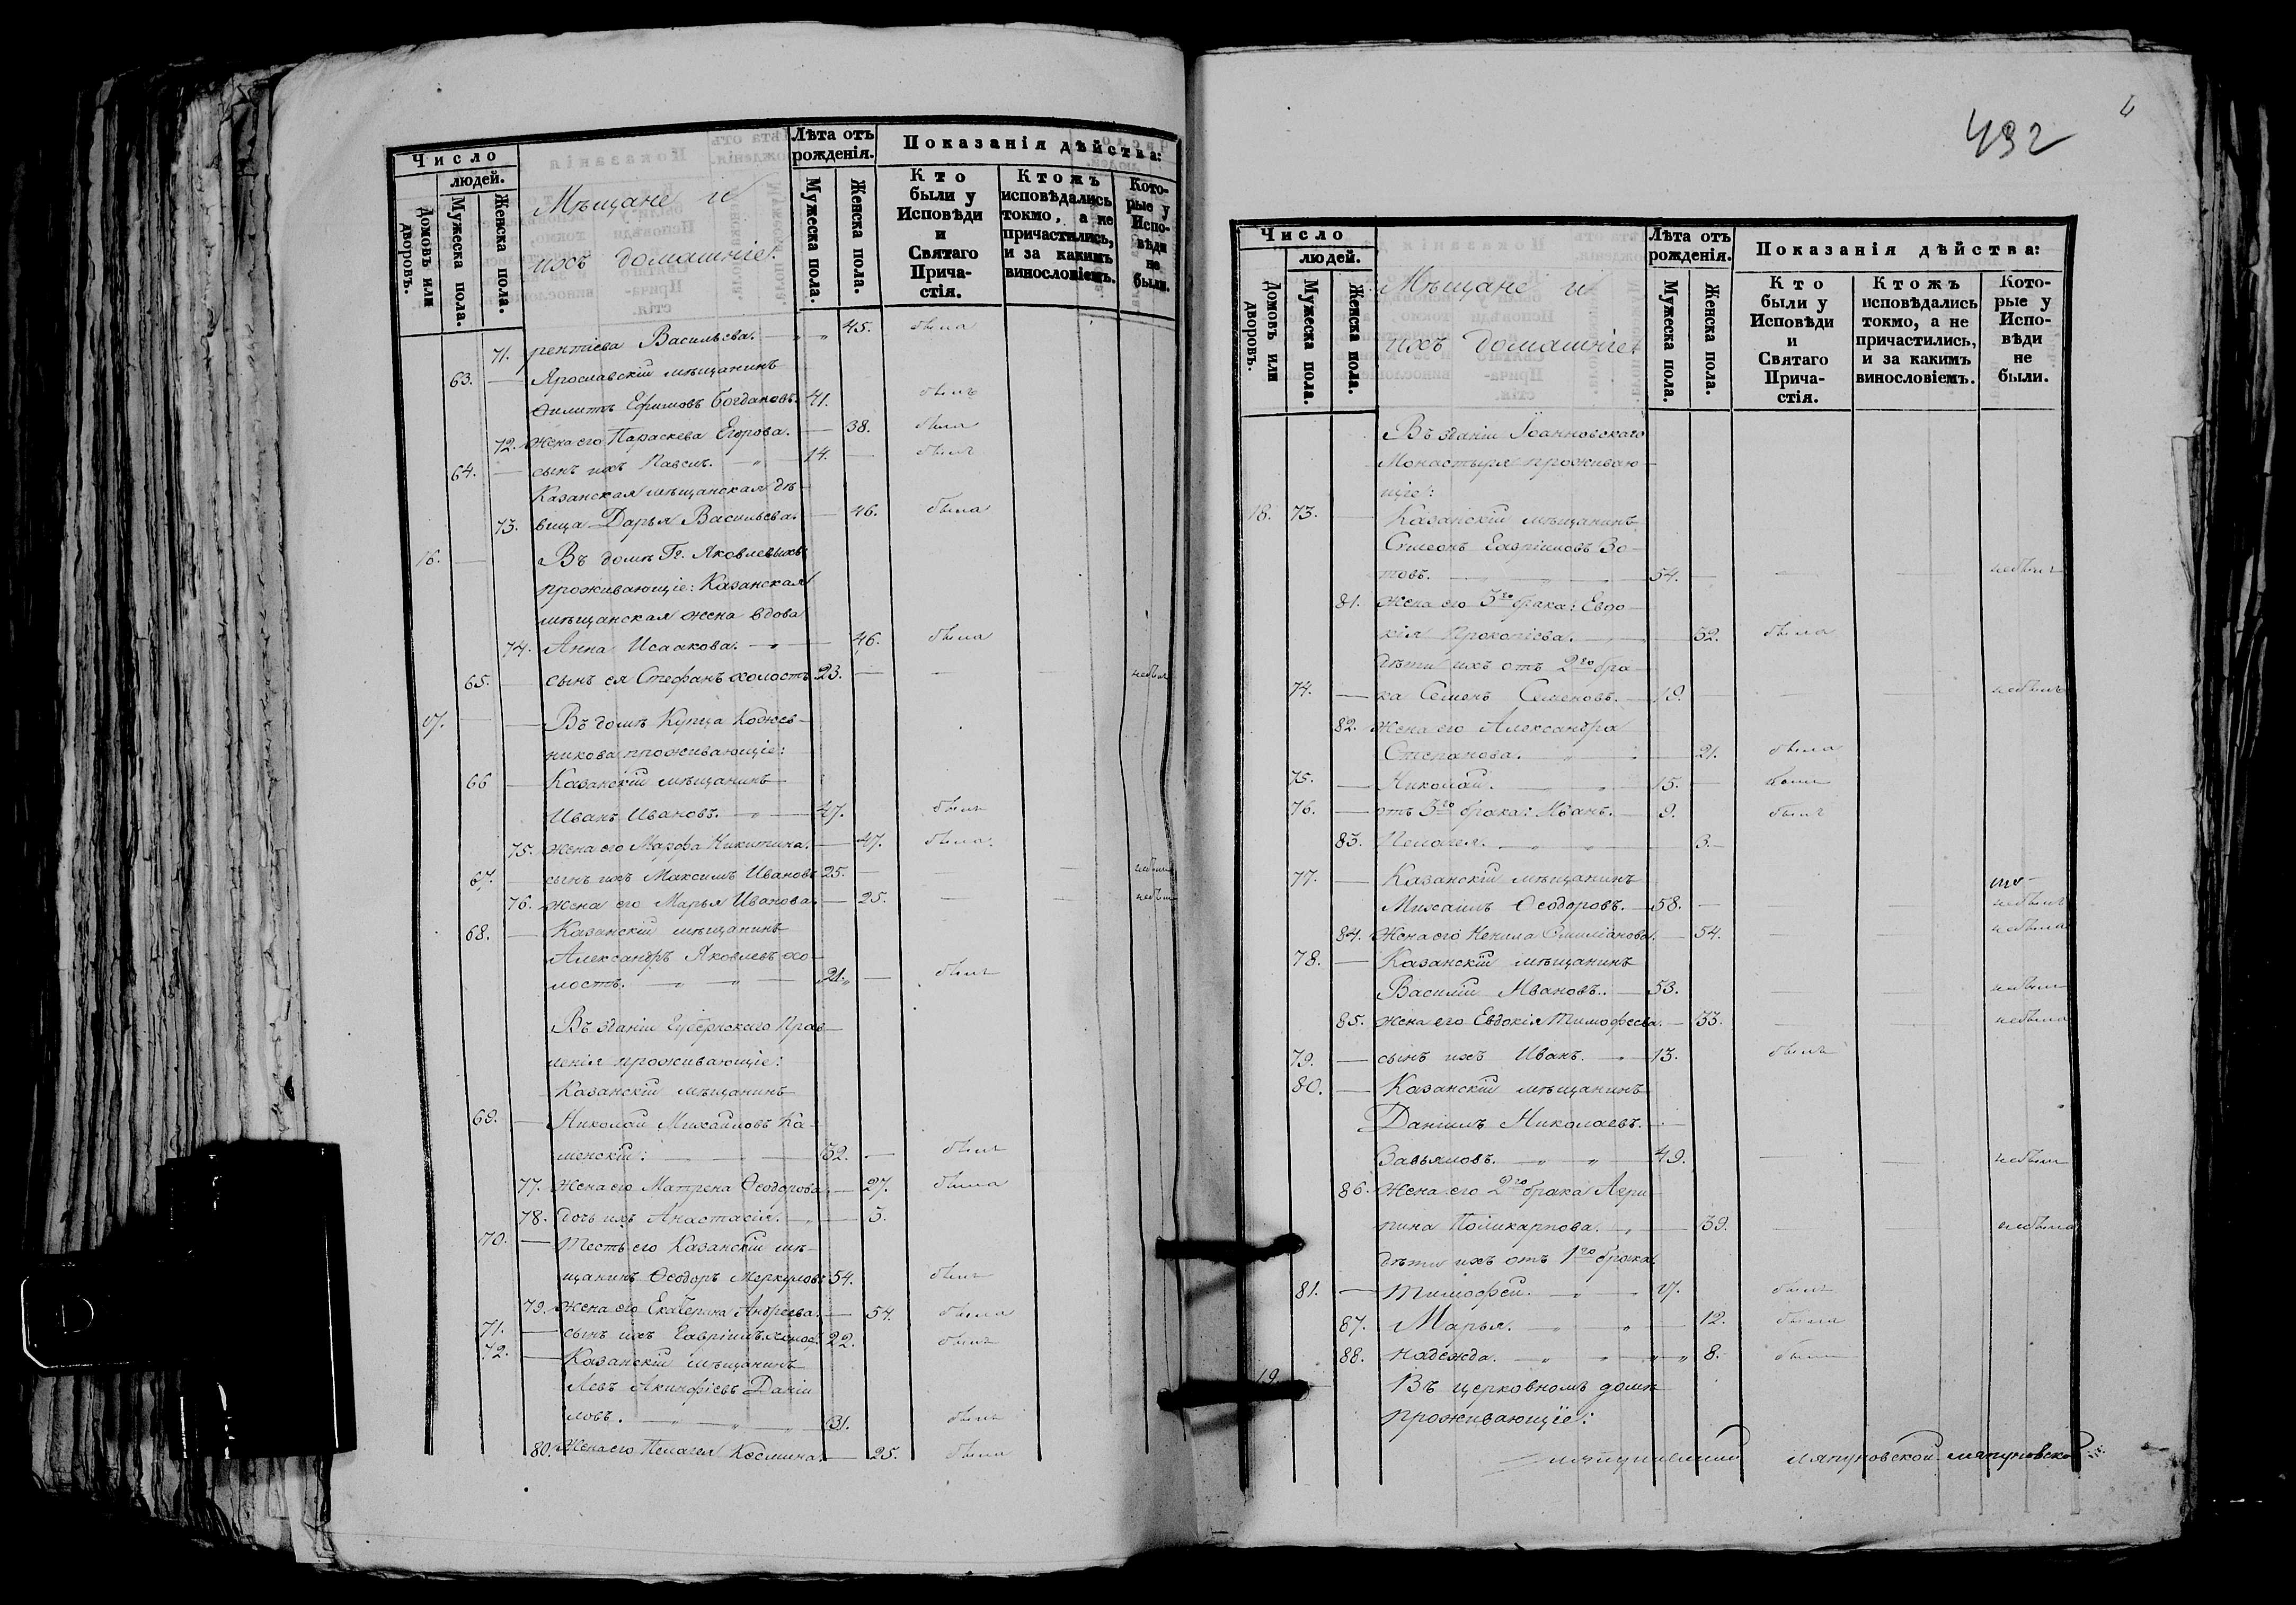 Число
людей.
Домовъ или дворовъ.
Мужеска пола.
Женска пола.
Мѣщане и
ихъ домашніе.
Лѣта отъ рожденія.
Мужеска пола.
Женска пола.
Показанія дѣйства:
Кто были у Исповѣди и Святаго Прича-стія.
Ктожъ исповѣдались токмо, а не причастились, и за какимъ винословіемъ.
Кото-рые у Испо-вѣди не были.
71. рентіева Васильева. — „ „ 45. была
63. — Ярославскій мѣщанинъ
Филипъ Ефимовъ Богдановъ. 41. былъ
72. жена его Параскева Егорова. — 38. была
64. — сынъ ихъ Павелъ. — „ — 14. — былъ
Казанская мѣщанская дѣ-
73. вица Дарья Васильева. — 46. была
16. — Въ домѣ Гг. Яковлевыхъ
проживающіе: Казанская
мѣщанская жена вдова
74. Анна Исаакова. — „ — 46. была
65. — сынъ ея Стефанъ холостъ 23. — — — небылъ
17. — — Въ домѣ Купца Кожев-
никова проживающіе:
66 — Казанскій мѣщанинъ
Иванъ Ивановъ. — „ — 47. былъ
75. жена его Марфа Никитина. — 47. была.
67. — сынъ ихъ Максимъ Ивановъ 25. — — — небылъ
76. жена его Марья Иванова. — 25. — — небыла
68. — Казанскій мѣщанинъ
Александръ Яковлевъ хо-
лостъ. — „ — „ — 21. — былъ
Въ зданіи Губернскаго Прав-
ленія проживающіе:
Казанскій мѣщанинъ
69. — Николай Михайловъ Ка-
менскій: — „ — 32. — былъ
77. жена его Матрена Ѳеодорова. — 27. была
78. дочь ихъ Анастасія. — „ — 3.
70. — Тесть его Казанскій мѣ-
щанинъ Ѳеодоръ Меркуловъ 54. былъ
79. жена его Екатерина Андреева. — 54. была
71. — сынъ ихъ Гавріилъ холос. 22. былъ
72. — Казанскій мѣщанинъ
Левъ Акинфіевъ Даніи
ловъ. — „ — „ — 31. былъ
80. Жена его Пелагея Космина. — 25. была
492
Число
людей.
Домовъ или дворовъ.
Мужеска пола.
Женска пола.
Мѣщане и
ихъ домашніе
Лѣта отъ рожденія.
Мужеска пола.
Женска пола.
Показанія дѣйства:
Кто были у Исповѣди и Святаго Прича-стія.
Ктожъ исповѣдались токмо, а не причастились, и за какимъ винословіемъ.
Кото-рые у Испо-вѣди не были.
Въ зданіи Іоанновскаго
Монастыря проживаю-
щіе:
18. 73. — Казанскій мѣщанинъ
Симеонъ Гавріиловъ Зо-
товъ. — „ — 54. — — небылъ
81. жена его 3го брака: Евдо-
кія Прокопіева. — „ — 32. была
дѣти ихъ отъ 2го бра-
74. — ка Семенъ Семеновъ. — 19. — — небылъ
82. жена его Александра
Степанова. — „ — 21. была
75. — Николай. — „ — 15. — былъ
76. — отъ 3го брака: Иванъ. — 9. былъ
83. Пелагея. — „ — 3. —
77. — Казанскій мѣщанинъ
Михаилъ Ѳеодоровъ. — 58. — — — небылъ
84. Жена его Ненила Емиліанова. — 54. — — небыла
78. — Казанскій мѣщанинъ
Василій Ивановъ. — 53. — — небылъ
85. жена его Евдокія Тимофеева. — 33. — — небыла
79. — сынъ ихъ Иванъ. — 13. былъ
80. — Казанскій мѣщанинъ
Даніилъ Николаевъ.
Завьяловъ. — „ „ — 49. — — небылъ
86. жена его 2го брака Агри-
пина Поликарпова. — „ — 39. — — небыла
дѣти ихъ отъ 1го брака.
81. — Тимофей. — „ — 17. былъ
87. Марья. — „ — „ — 12. была
88. Надежда. — „ — „ 8. была
19. — Въ церковномъ домѣ
проживающіе: